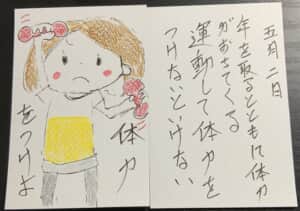 五月二日
年を取るとともに体力
がおちてくる
運動して体力を
つけないといけない
体力
をつけよ